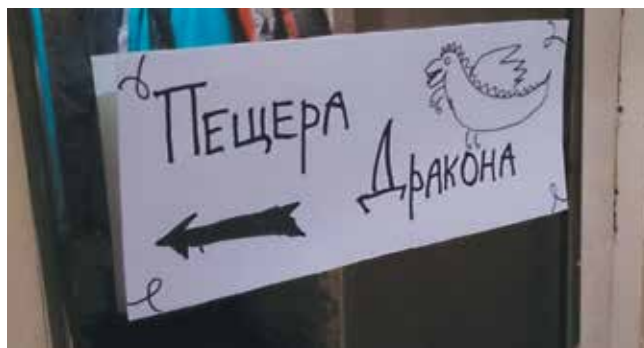 Пещера
Дракона